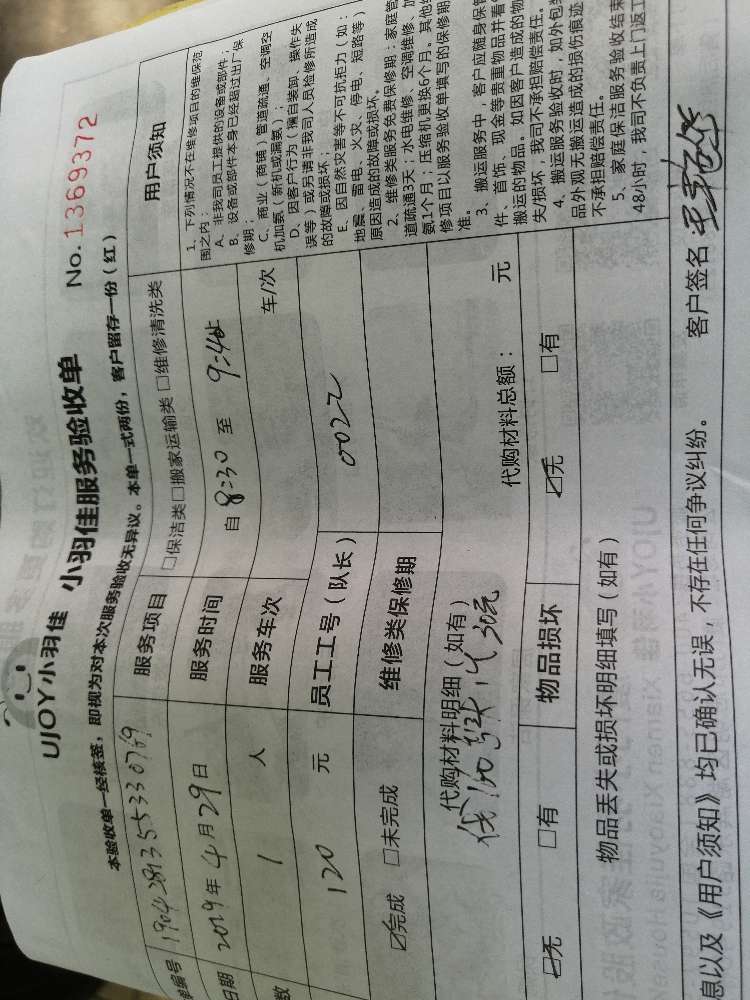 UJOY小羽佳 小羽佳服务验收单 No.1369372
本验收单一经核签，即视为对本次服务验收无异议。本单一式两份，客户留存一份（红）
单编号 服务项目 □保洁类□搬家运输类 □维修清洗类
日期 2019年4月29日 服务时间 自 8:30 至
数 1 人 服务车次 车/次
120 元 员工工号（队长） 0022
☑完成 □未完成 维修类保修期
代购材料明细（如有） 代购材料总额： 元
30元
☑无 □有 物品损坏 ☑无 □有
物品丢失或损坏明细填写（如有）
用户须知
1、下列情况不在维修项目的维保范
围之内：
A、非我司员工提供的设备或部件；
B、设备或部件本身已经超过出厂保
修期；
C、商业（商铺）管道疏通、空调空
机加氨（新机或漏氨）；
D、因客户行为（擅自装卸、操作失
误等）或另请非我司人员检修所造成
的故障或损坏。
E、因自然灾害等不可抗拒力（如：
地震、雷电、火灾、停电、短路等）
原因造成的故障或损坏。
2、维修类服务免费保修期：家庭管
道疏通3天；水电维修、空调维修、加
氨1个月；压缩机更换6个月。其他维
修项目以服务验收单填写的保修期
准。
3、搬运服务中，客户应随身保管
件、首饰、现金等贵重物品并看
搬运的物品。如因客户造成的物
失/损坏，我司不承担赔偿责任。
4、搬运服务验收时，如外包装
品外观无搬运造成的损伤痕迹
不承担赔偿责任。
5、家庭保洁服务验收结束
48/小时，我司不负责上门返工
息以及《用户须知》均已确认无误，不存在任何争议纠纷。 客户签名